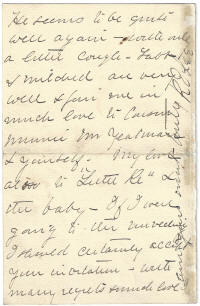 He seems to be quite
well again - with only
a little cough -
& Mildred are very
well & join me in
much love to Cousin
Minnie Mr Yeatman
& yourself - My love
also to "Little Re" &
the baby - If I were
going to the
I should certainly accept
your invitation - with
many regrets & much love